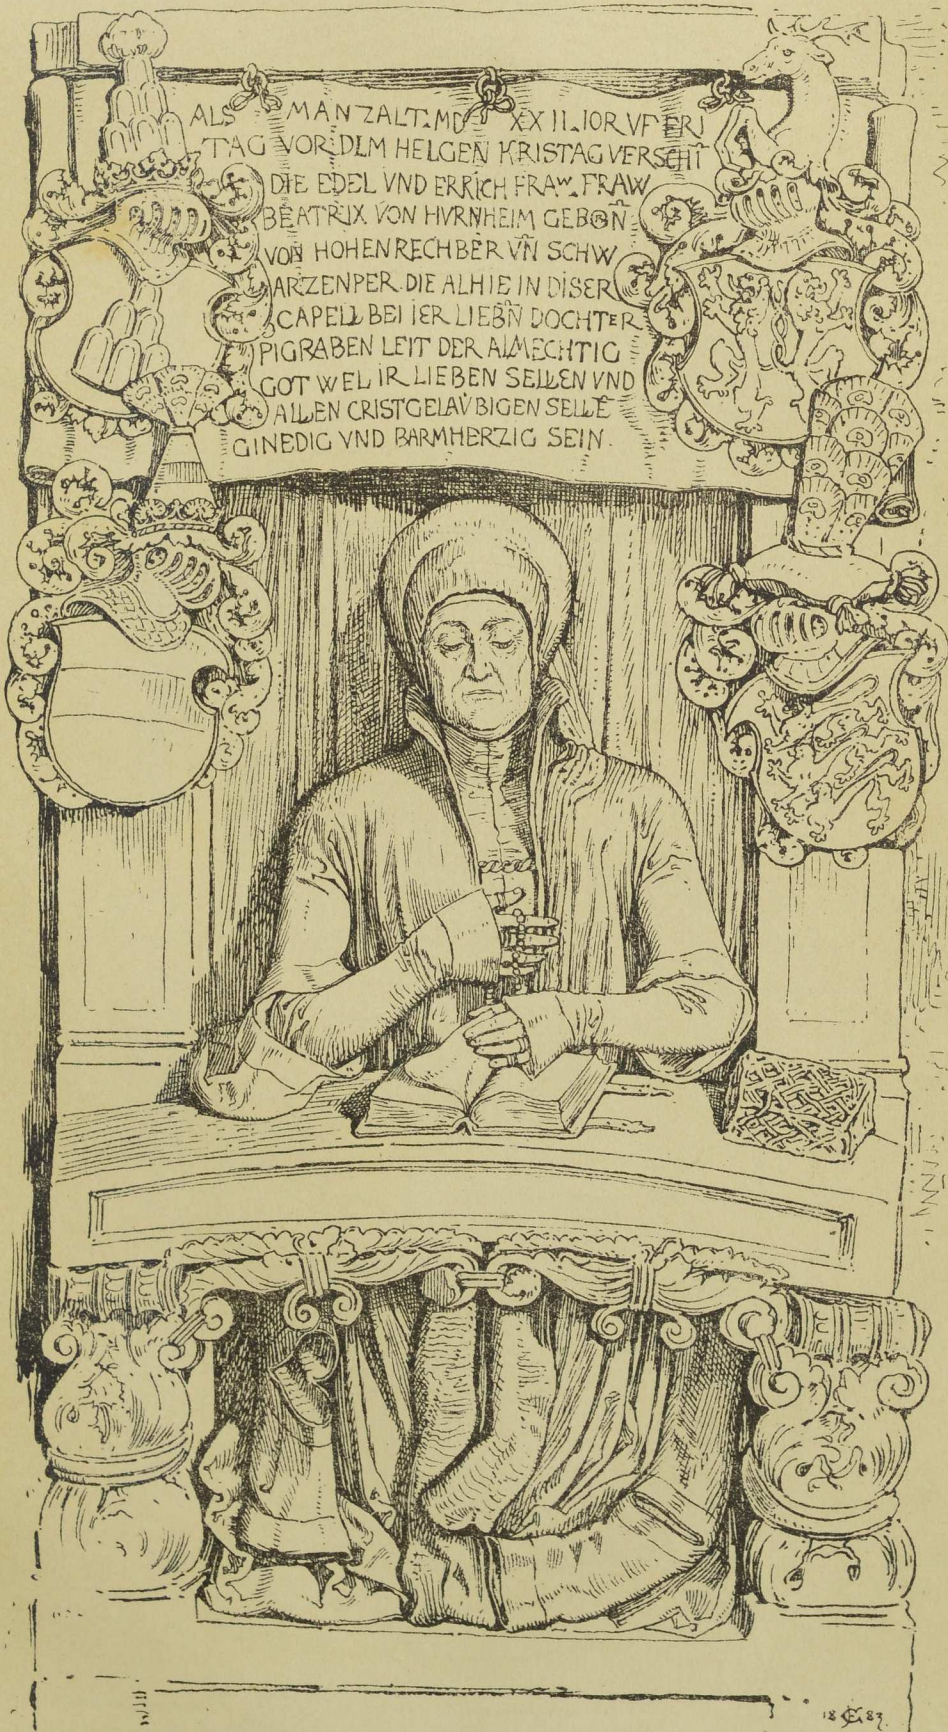 ALS MAN ZALT. MD XXII. IOR VF ERI
TAG VOR DEM HELGEN KRISTAG VERSCHĪ
DIE EDEL VND ERRICH FRAW. FRAW
BEATRIX VON HVRNHEIM GEBORN̄
VON HOHENRECHBER VN̄ SCHW
ARZENPER. DIE ALHIE IN DISER
CAPELL BEI IER LIEBN̄ DOCHTER
PIGRABEN LEIT DER ALMECHTIG
GOT WEL IR LIEBEN SELLEN VND
ALLEN CRISTGELAVBIGEN SELLĒ
GINEDIG VND BARMHERZIG SEIN.
18 83